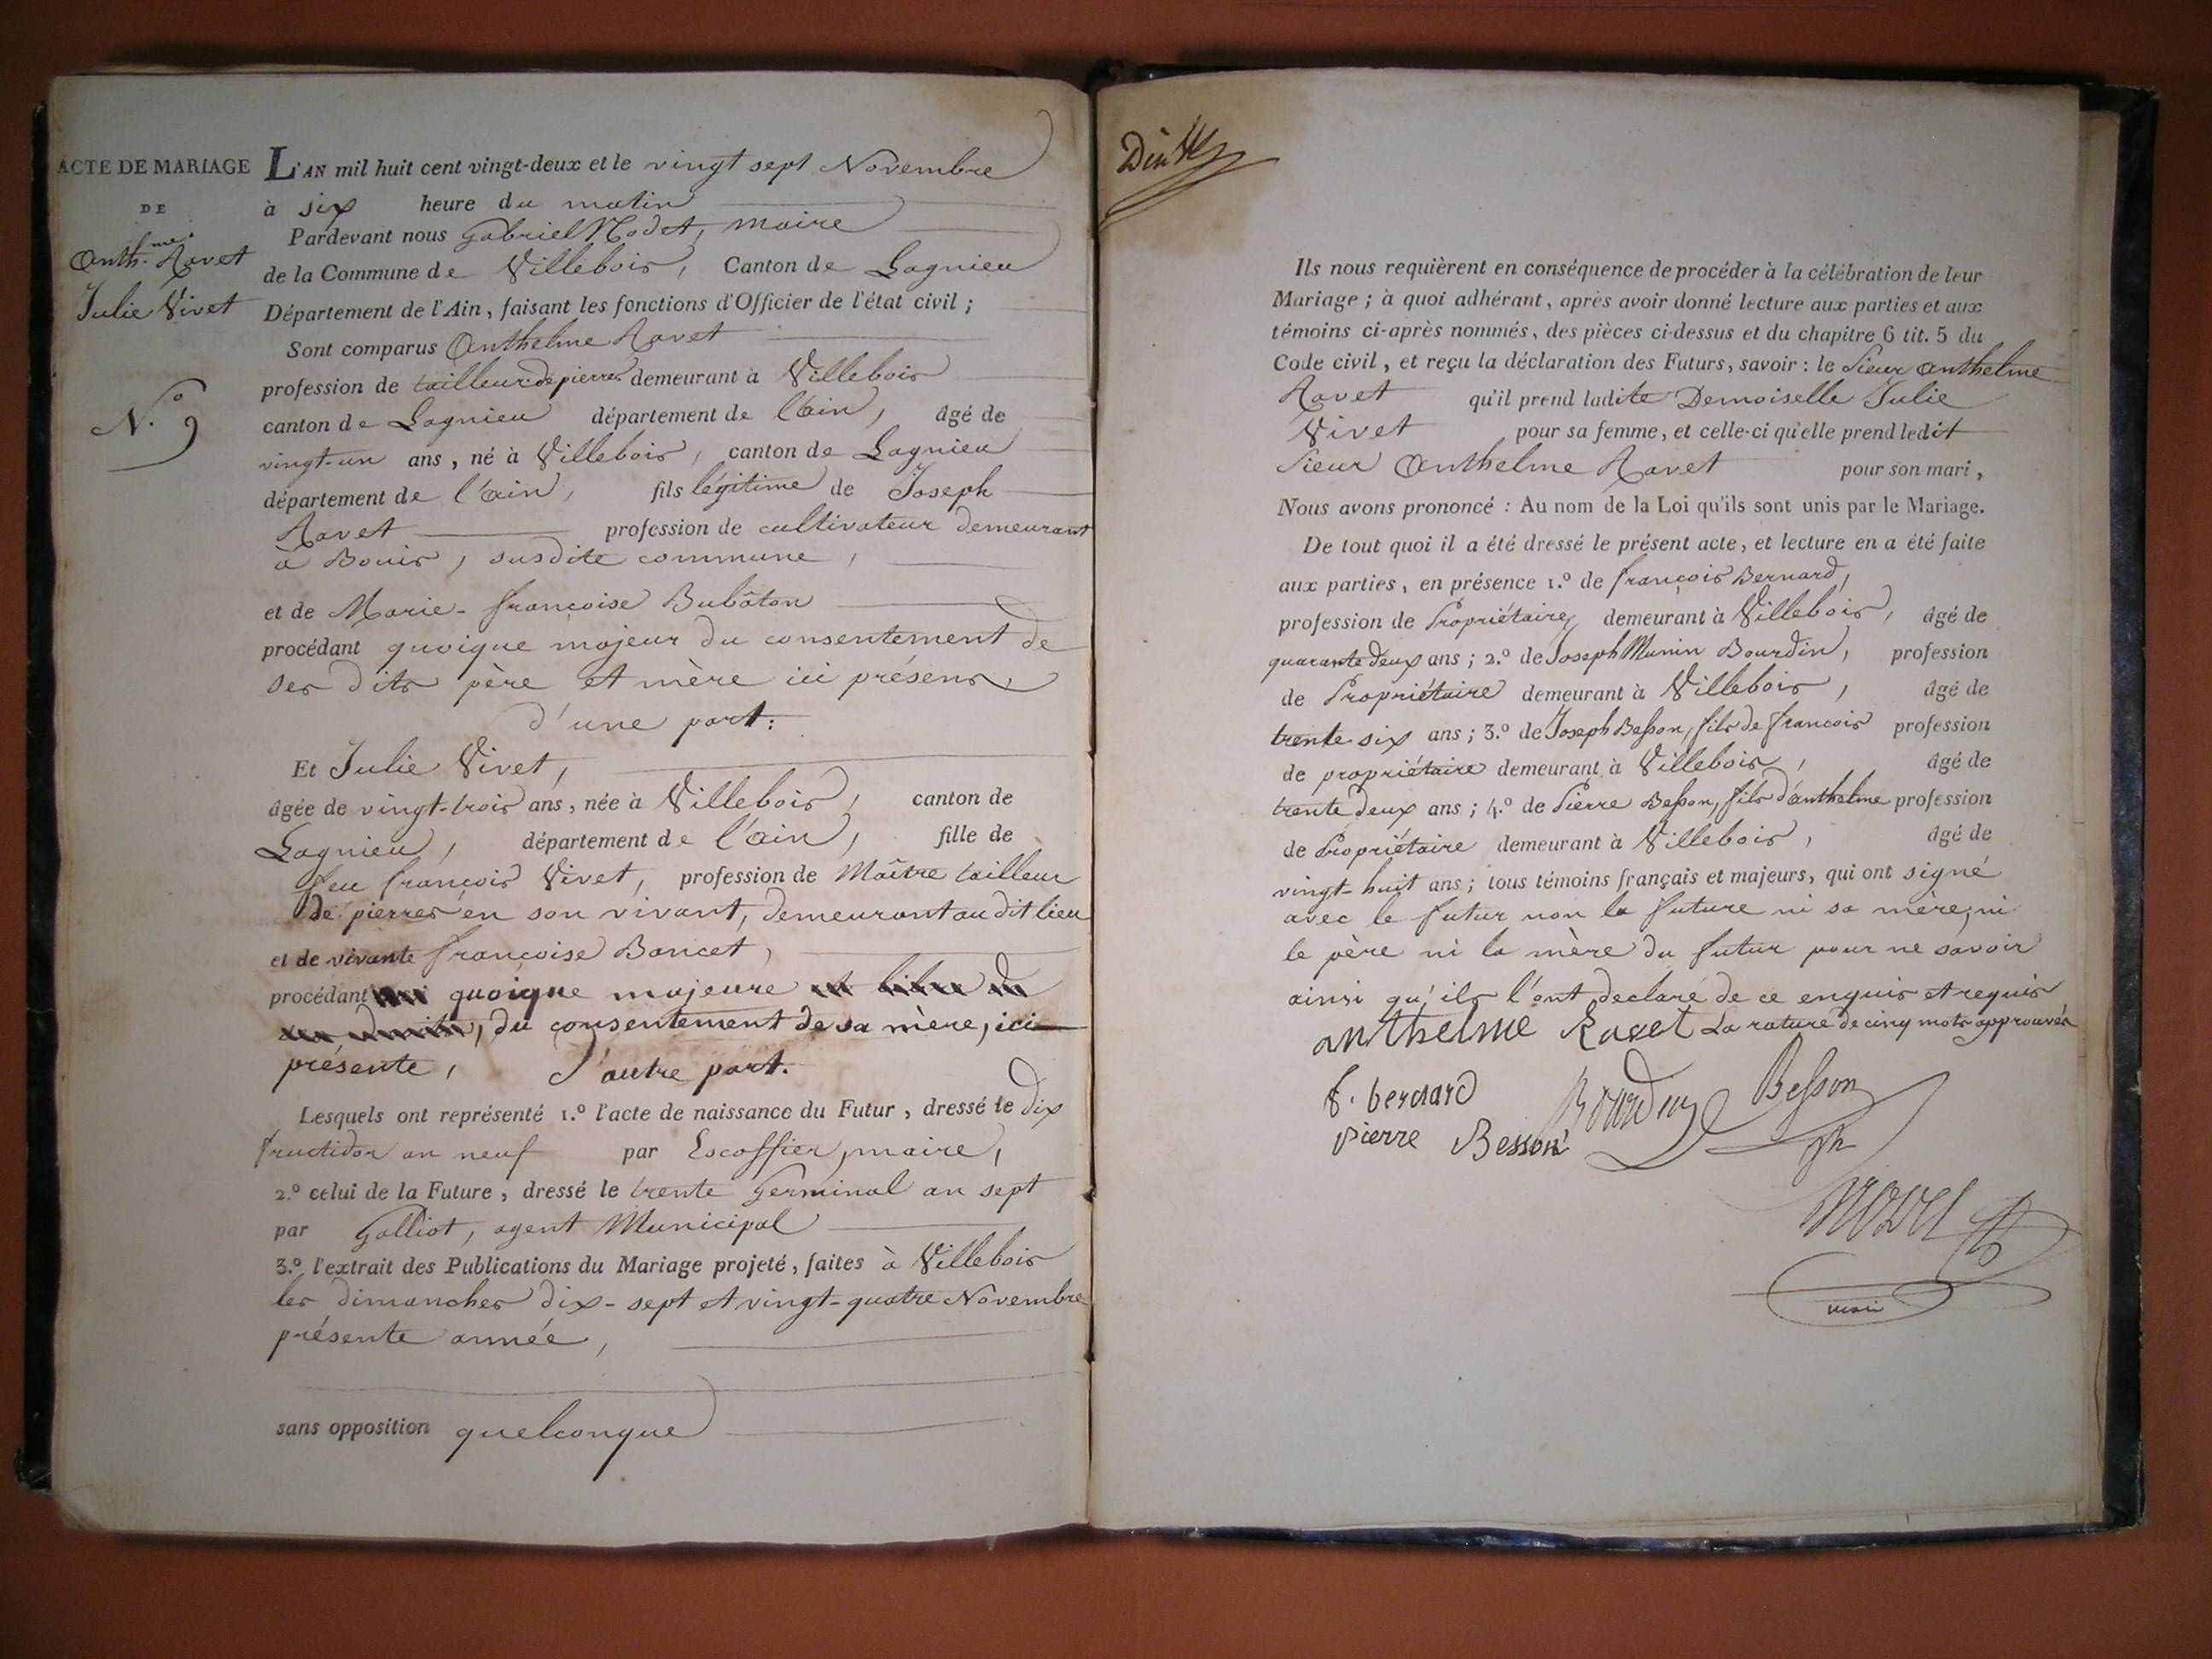 ACTE DE MARIAGE
DE
Anth.me Ravet
Julie Vivet
N.o 9
L'AN mil huit cent vingt-deux et le vingt sept Novembre
à six heure du matin
Pardevant nous Gabriel Modet, maire
de la Commune de Villebois, Canton de Lagnieu
Département de l'Ain, faisant les fonctions d'Officier de l'état civil ;
Sont comparus Anthelme Ravet
profession de tailleur de pierres demeurant à Villebois
canton de Lagnieu département de l'ain, âgé de
vingt-un ans, né à Villebois, canton de Lagnieu
département de l'ain, fils légitime de Joseph
Ravet profession de cultivateur demeurant
à Bouis, susdite commune,
et de Marie-françoise Bubâton
procédant quoique majeur du consentement de
ses dits père et mère ici présens
d'une part :
Et Julie Vivet,
âgée de vingt-trois ans, née à Villebois, canton de
Lagnieu, département de l'ain, fille de
feu françois Vivet, profession de Maître tailleur
de pierres en son vivant, demeurant au dit lieu
et de vivante françoise Bancet,
procédant quoique majeure
du consentement de sa mère, ici
présente, d'autre part.
Lesquels ont représenté 1.o l'acte de naissance du Futur, dressé le dix
fructidor an neuf par Escoffier, maire,
2.o celui de la Future, dressé le trente Germinal an sept
par Galliot, agent Municipal
3.o l'extrait des Publications du Mariage projeté, faites à Villebois
les dimanches dix-sept et vingt-quatre Novembre
présente année,
sans opposition quelconque
Ils nous requièrent en conséquence de procéder à la célébration de leur
Mariage ; à quoi adhérant, après avoir donné lecture aux parties et aux
témoins ci-après nommés, des pièces ci-dessus et du chapitre 6 tit. 5 du
Code civil, et reçu la déclaration des Futurs, savoir : le Sieur Anthelme
Ravet qu'il prend ladite Demoiselle Julie
Vivet pour sa femme, et celle-ci qu'elle prend ledit
Sieur Anthelme Ravet pour son mari,
Nous avons prononcé : Au nom de la Loi qu'ils sont unis par le Mariage.
De tout quoi il a été dressé le présent acte, et lecture en a été faite
aux parties, en présence 1.o de françois Bernard,
profession de Propriétaire, demeurant à Villebois, âgé de
quarante deux ans ; 2.o de Joseph Munin Bourdin, profession
de Propriétaire demeurant à Villebois, âgé de
trente-six ans ; 3.o de Joseph Besson, fils de francois profession
de propriétaire demeurant à Villebois, âgé de
trente deux ans ; 4.o de Pierre Besson, fils d'anthelme profession
de Propriétaire demeurant à Villebois, âgé de
vingt-huit ans ; tous témoins français et majeurs, qui ont signé
avec le futur non la future ni sa mère, ni
le père ni la mère du futur pour ne savoir
ainsi qu'ils l'ont déclaré de ce enquis et requis
anthelme Ravet La rature de cinq mots approuvée
f. bernard Bourdin Besson
pierre Besson
Modet